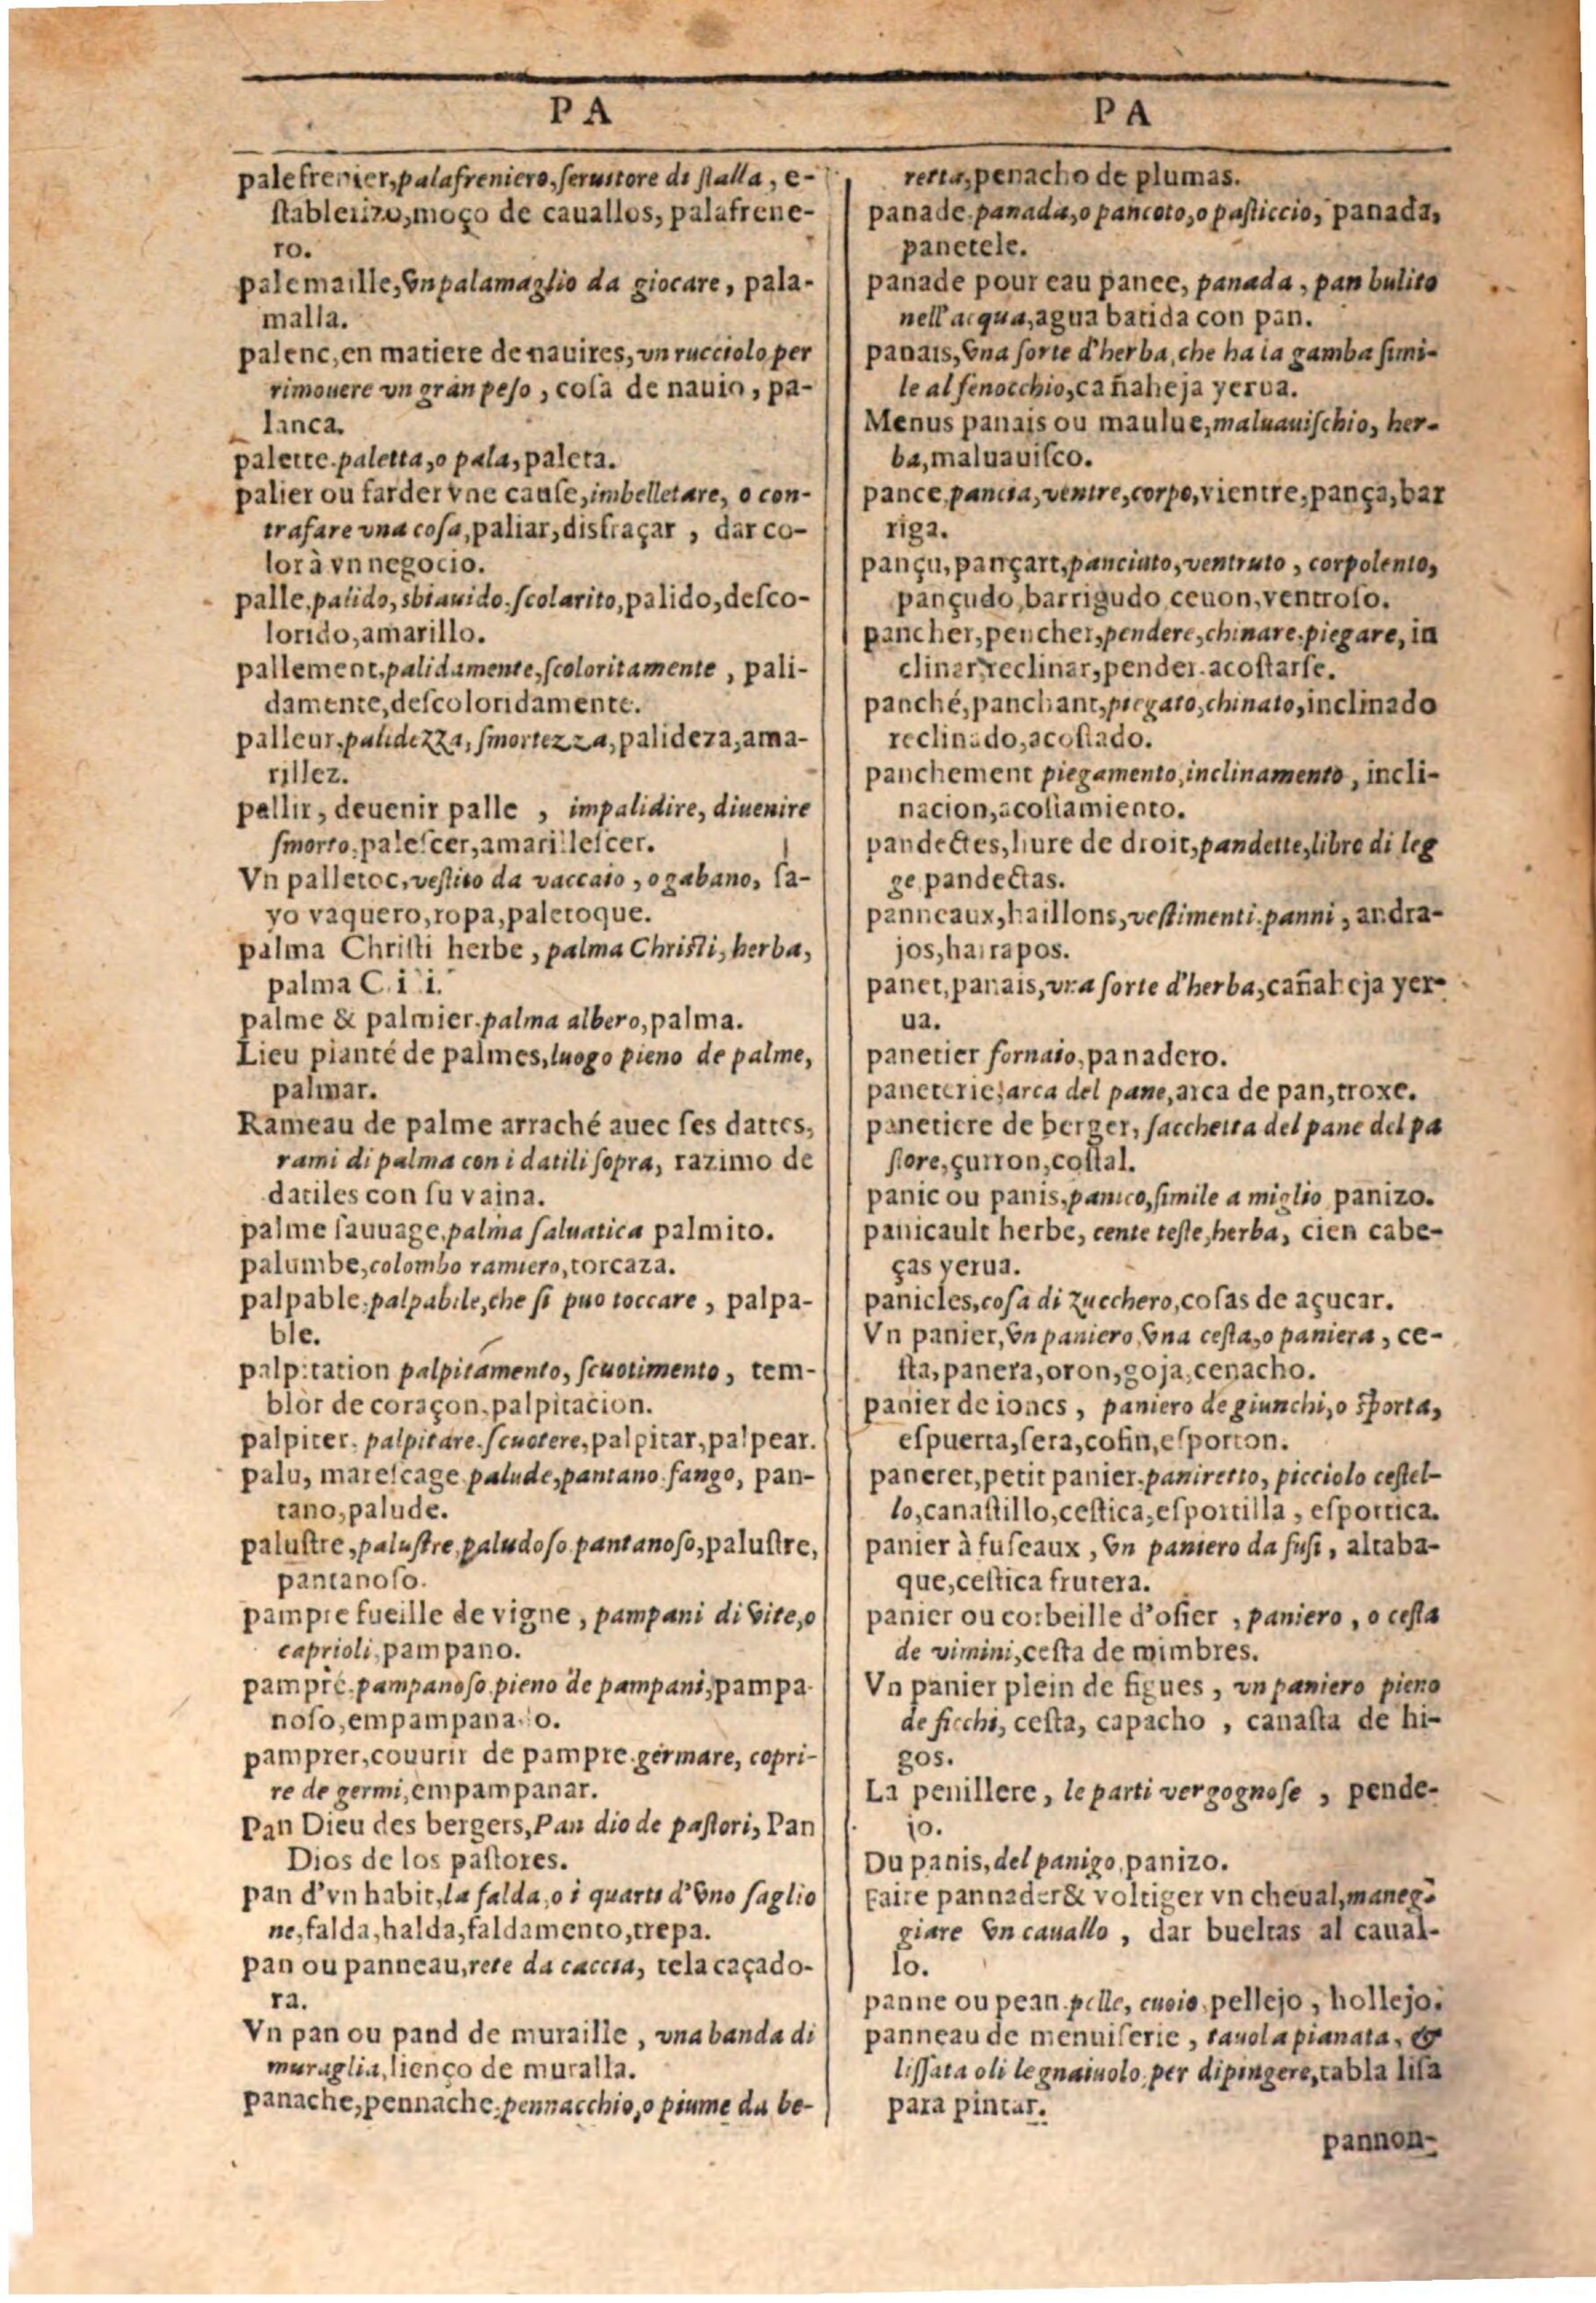 PA
palefrenier, palafreniero, seruitore di stalla, e-
stablerizo, moço de cauallos, palafrene-
ro.
palemaille, vn palamaglio da giocare, pala-
malla.
palenc, en matiere de nauires, vn rucciolo per
rimouere vn gran peso, cosa de nauio, pa-
lanca.
palette. paletta, o pala, paleta.
palier ou farder vne cause, imbelletare, o con-
trafare vna cosa, paliar, disfraçar, dar co-
lor à vn negocio.
palle, palido, sbiauido. scolarito, palido, desco-
lorido, amarillo.
pallement, palidamente, scoloritamente, pali-
damente, descoloridamente.
palleur, palidezza, smortezza, palideza, ama-
rillez.
pallir, deuenir palle, impalidire, diuenire
smorto, palescer, amarillescer.
Vn palletoc, vestito da vaccaio, o gabano, sa-
yo vaquero, ropa, paletoque.
palma Christi herbe, palma Christi, herba,
palma
palme & palmier. palma albero, palma.
Lieu planté de palmes, luogo pieno de palme,
palmar.
Rameau de palme arraché auec ses dattes,
rami di palma con i datili sopra, razimo de
datiles con su vaina.
palme sauuage, palma saluatica palmito.
palumbe, colombo ramiero, torcaza.
palpable, palpabile, che si puo toccare, palpa-
ble.
palpitation palpitamento, scuotimento, tem-
blor de coraçon, palpitacion.
palpiter, palpitare. scuotere, palpitar, palpear.
palu, marescage palude, pantano fango, pan-
tano, palude.
palustre, palustre, paludoso pantanoso, palustre,
pantanoso.
pampre fueille de vigne, pampani di vite, o
caprioli, pampano.
pampré. pampanoso pieno de pampani, pampa
noso, empampanado.
pamprer, couurir de pampre. germare, copri-
re de germi, empampanar.
Pan Dieu des bergers, Pan dio de pastori, Pan
Dios de los pastores.
pan d'vn habit, la falda, o i quarti d'vno saglio
ne, falda, halda, faldamento, trepa.
pan ou panneau, rete da caccia, tela caçado-
ra.
Vn pan ou pand de muraille, vna banda di
muraglia, lienço de muralla.
panache, pennache, pennacchio, o piume da be-
PA
retta, penacho de plumas.
panade. panada, o pancoto, o pasticcio, panada,
panetele.
panade pour eau panee, panada, pan bulito
nell'acqua, agua batida con pan.
panais, vna sorte d'herba, che ha la gamba simi-
le al fenocchio, cañaheja yerua.
Menus panais ou maulue, maluauischio, her-
ba, maluauisco.
pance, pancia, ventre, corpo, vientre, pança, bar
riga.
pançu, pançart, panciuto, ventruto, corpolento,
pançudo, barrigudo, ceuon, ventroso.
pancher, pencher, pendere, chinare. piegare, in
clinar, reclinar, pender. acostarse.
panché, panchant, piegato, chinato, inclinado
reclinado, acostado.
panchement piegamento, inclinamento, incli-
nacion, acostamiento.
pandectes, liure de droit, pandette, libro di leg
ge, pandectas.
panneaux, haillons, vestimenti. panni, andra-
jos, harrapos.
panet, panais, vna sorte d'herba, cañaheja yer-
ua.
panetier fornaio, panadero.
paneterie, arca del pane, arca de pan, troxe.
panetiere de berger, sacchetta del pane del pa
store, çurron, costal.
panic ou panis, panico, simile a miglio panizo.
panicault herbe, cente teste, herba, cien cabe-
ças yerua.
panicles, cosa di zucchero, cosas de açucar.
Vn panier, vn paniero, vna cesta, o paniera, ce-
sta, panera, oron, goja, cenacho.
panier de ioncs, paniero de giunchi, o sporta,
espuerta, sera, cofin, esporton.
paneret, petit panier, paniretto, picciolo cestel-
lo, canastillo, cestica, esportilla, esportica.
panier à fuseaux, vn paniero da fusi, altaba-
que, cestica frutera.
panier ou corbeille d'osier, paniero, o cesta
de vimini, cesta de mimbres.
Vn panier plein de figues, vn paniero pieno
de ficchi, cesta, capacho, canasta de hi-
gos.
La penillere, le parti vergognose, pende-
jo.
Du panis, del panigo, panizo.
Faire pannader & voltiger vn cheual, maneg-
giare vn cauallo, dar bueltas al caual-
lo.
panne ou pean. pelle, cuoio, pellejo, hollejo.
panneau de menuiserie, tauola pianata, &
lissata o li legnaiuolo, per dipingere, tabla lisa
para pintar.
pannon-